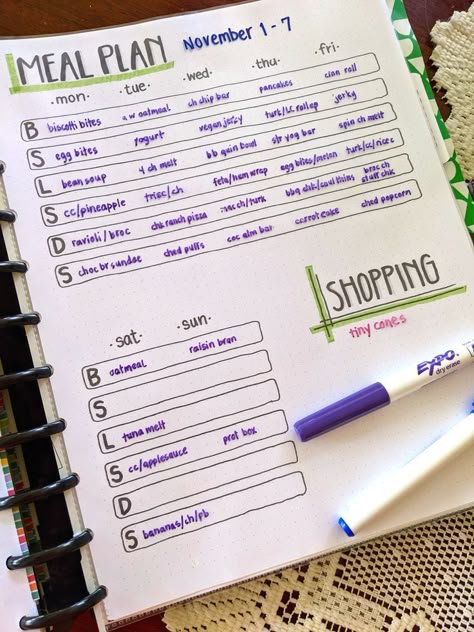 MEAL PLAN November 1-7
mon· ·tue· ·wed· ·thu· ·fri·
B biscotti bites aw oatmeal ch chip bar pancakes cinn roll
S egg bites yogurt vegan jerky turk/lc roll up jerky
L bean soup 4 ch melt bb gain bowl str yog bar spin ch melt
S cc/pineapple trisc/ch feta/hum wrap egg bites/melon turk/lc/rices
D ravioli/broc chk ranch pizza ch/turk bbq chk/caul thins broc ch stuff chk
S choc br sundae ched puffs coc alm bar carrot cake ched popcorn
SHOPPING
tiny cones
·sat· ·sun·
B oatmeal raisin bran
S
L tuna melt
S cc/applesauce prot box
D
S bananas/ch/pb
EXPO
dry erase